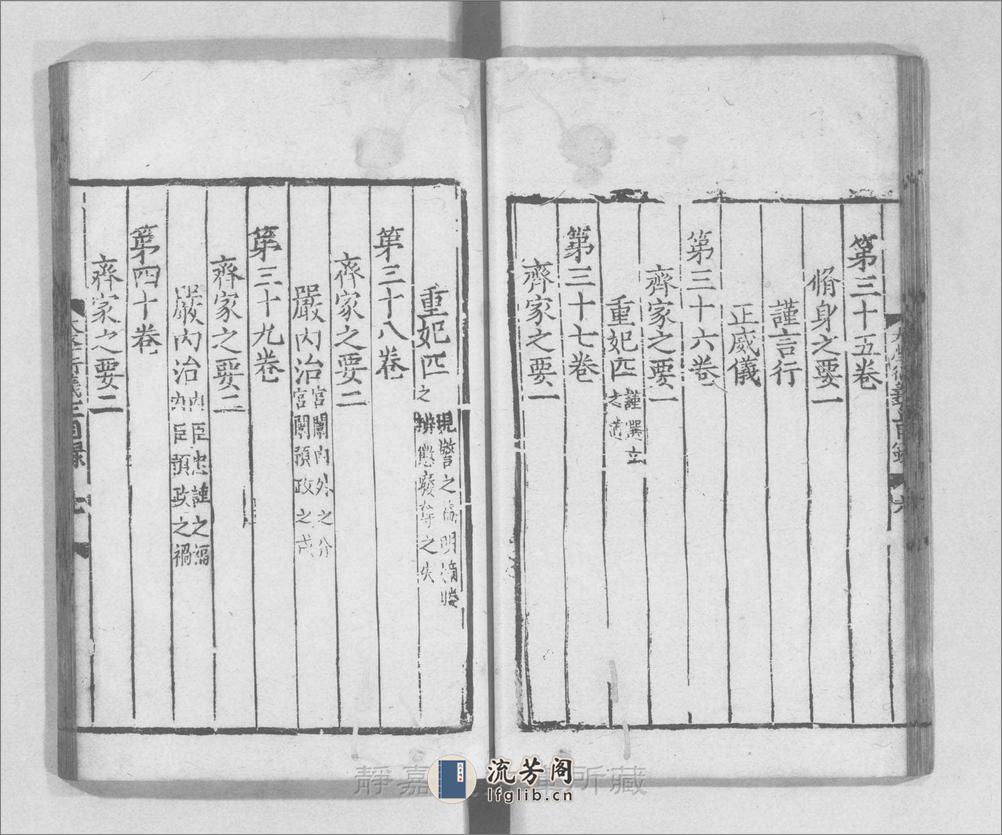 第三十五卷
脩身之要一
謹言行
正威儀
第三十六卷
齊家之要一
重妃匹 謹選立之道
第三十七卷
齊家之要一
重妃匹 之 規警之 明嫡 辨懲廢奪之失
第三十八卷
齊家之要二
嚴內治 宮闈內外之分 宮闈預政之戒
第三十九卷
齊家之要二
嚴內治 內臣忠謹之福 內臣預政之禍
第四十卷
齊家之要二
靜嘉 所藏
流芳阁
lfglib.cn